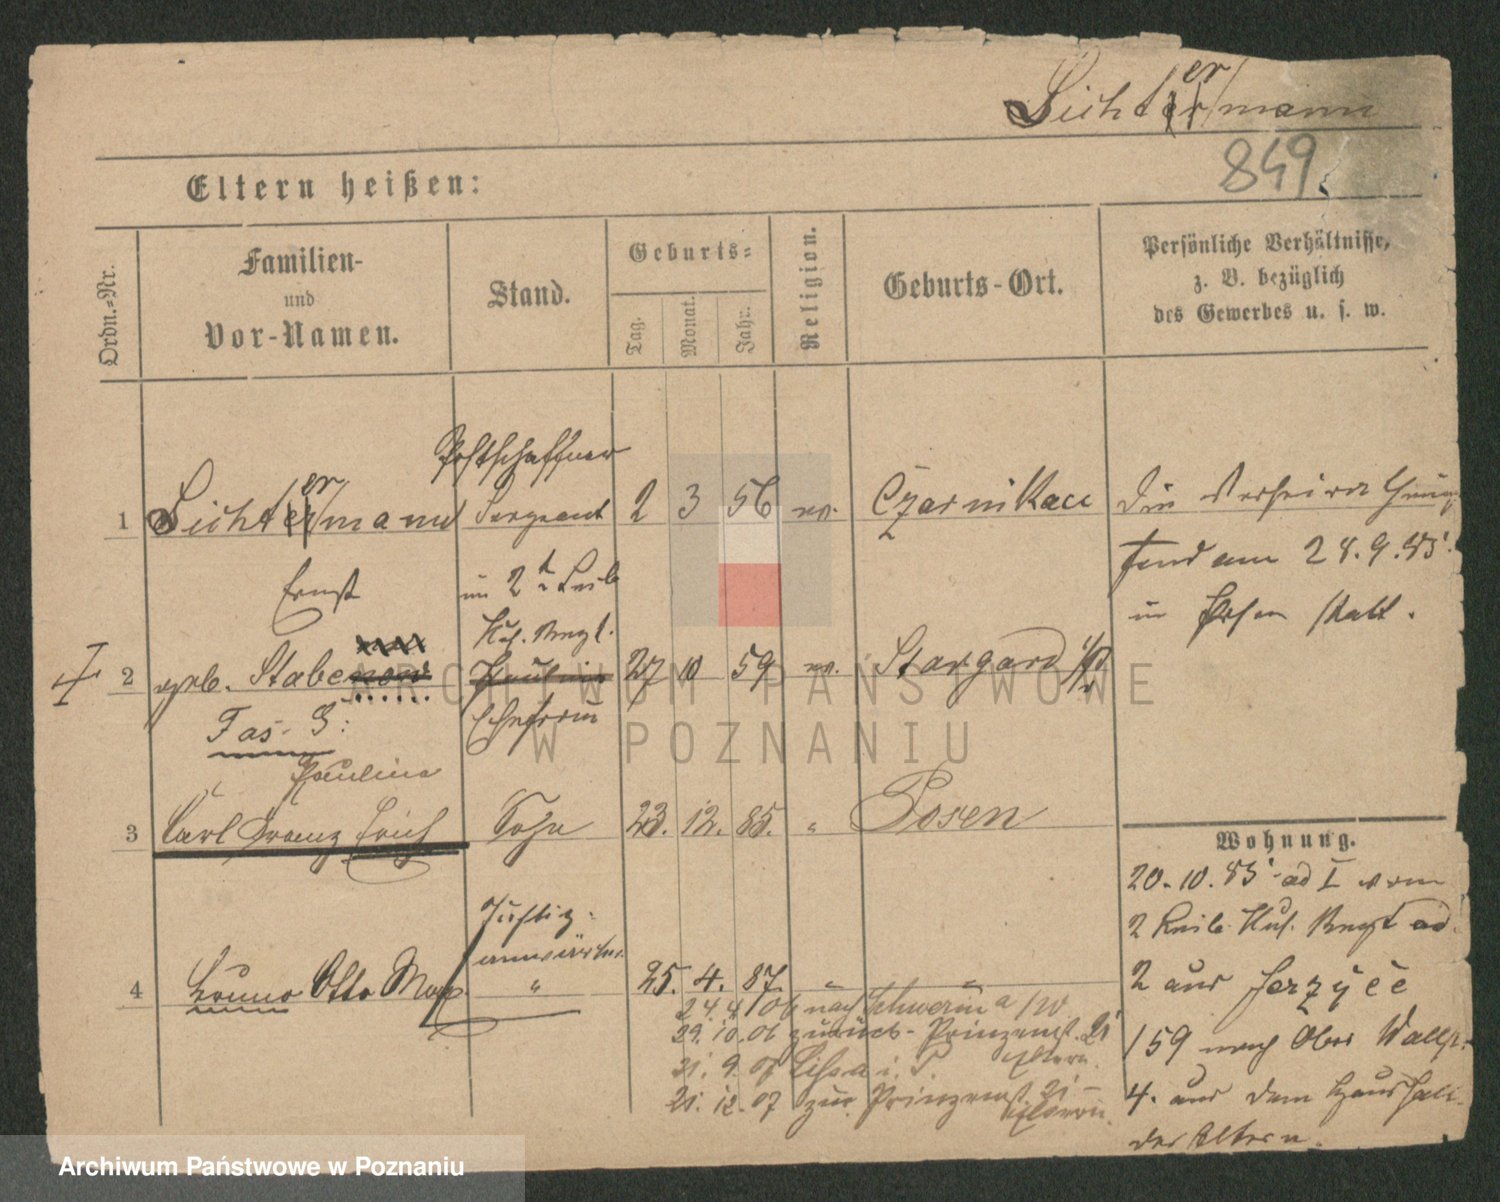 Lichtermann
849
Eltern heißen:
Ordn.-Nr.
Familien-
und
Vor-Namen.
Stand.
Geburts-
Tag.
Monat.
Jahr.
Religion.
Geburts-Ort.
Persönliche Verhältnisse,
z. B. bezüglich
des Gewerbes u. s. w.
Postschaffner
1 Lichtermann Sergeant 2 3 56 ev. Czarnikau
Ernst
im 2t Leib
Hus. Regt.
Die Verheirathung
fand am 28.9.85
in Posen statt.
2 geb. Stabenow Pauline 27 10 59 ev. Stargard i/P
Ehefrau
Pauline
3 Carl Franz Erich Sohn 23. 12. 85. " Posen
Justiz-
anwärter
4 Bruno Otto Max " 25. 4. 87. " "
24.4.06 nach Schwerin a/W
29.10.06 zurück - Prinzenst. 21
Eltern.
21. 9. 07 Lissa i. P.
21. 12. 07 zur. Prinzenst. 21 -
Eltern
Wohnung.
20.10.85 ad I vom
2 Leib Hus. Regt ad
2 aus Jerzyce
159 nach Ober Wallst.
4. aus dem Haushalt
der Eltern.
ARCHIWUM PAŃSTWOWE
W POZNANIU
Archiwum Państwowe w Poznaniu